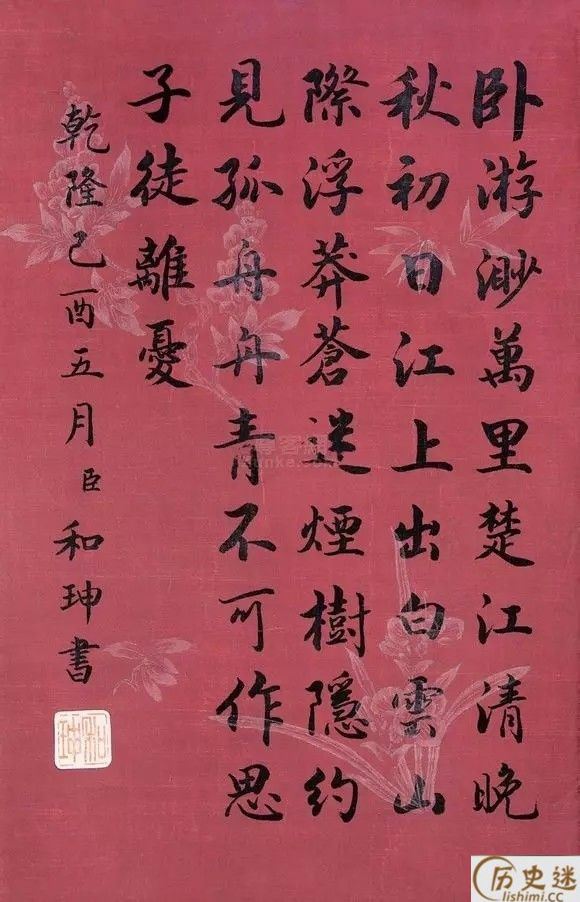 卧游渺萬里楚江清晚
秋初日江上出白雲山
際浮莽蒼迷煙樹隱約
見孤舟丹青不可作思
子徒離憂
乾隆己酉五月臣和珅書
历史迷
lishimi.cc